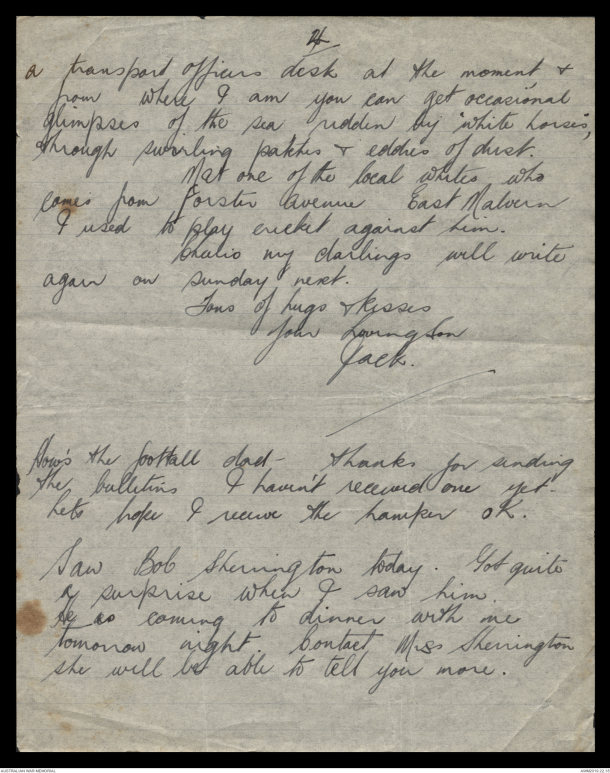 4
a transport officers desk at the moment, &
from where I am you can get occasional
glimpses of the sea ridden by "white horses",
through swirling patches & eddies of dust.
Met one of the local whites who
comes from Forster Avenue East Malvern
I used to play cricket against him.
my darlings will write
again on sunday next.
Tons of hugs & kisses
Your Loving Son
Jack.
How's the football dad - thanks for sending
the bulletins I haven't received one yet.
Lets hope I receive the hamper OK.
Saw Bob Sherrington today. Got quite
a surprise when I saw him.
He is coming to dinner with me
tomorrow night. Contact Mrs Sherrington
she will be able to tell you more.
AUSTRALIAN WAR MEMORIAL